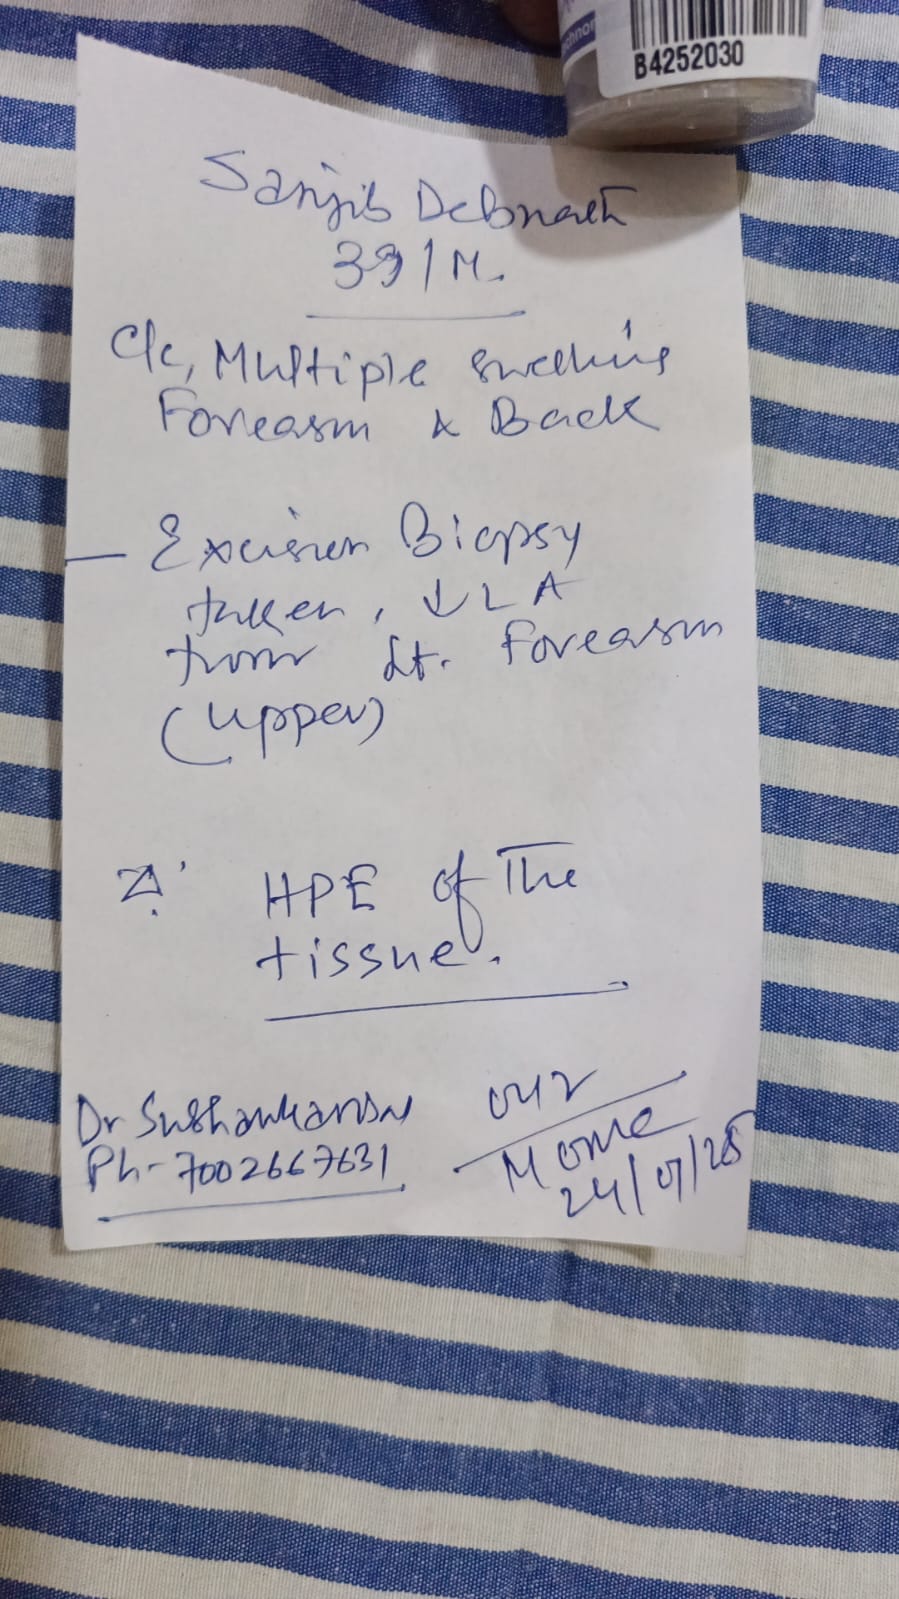 B4252030
Sanjib Debnath
39/M.
C/c, Multiple swelling
Forearm & Back
— Excision Biopsy
taken, ↓ L A
from Lt. Forearm
(upper)
HPE of The
tissue.
Dr
Ph- 7002667631
24/07/25